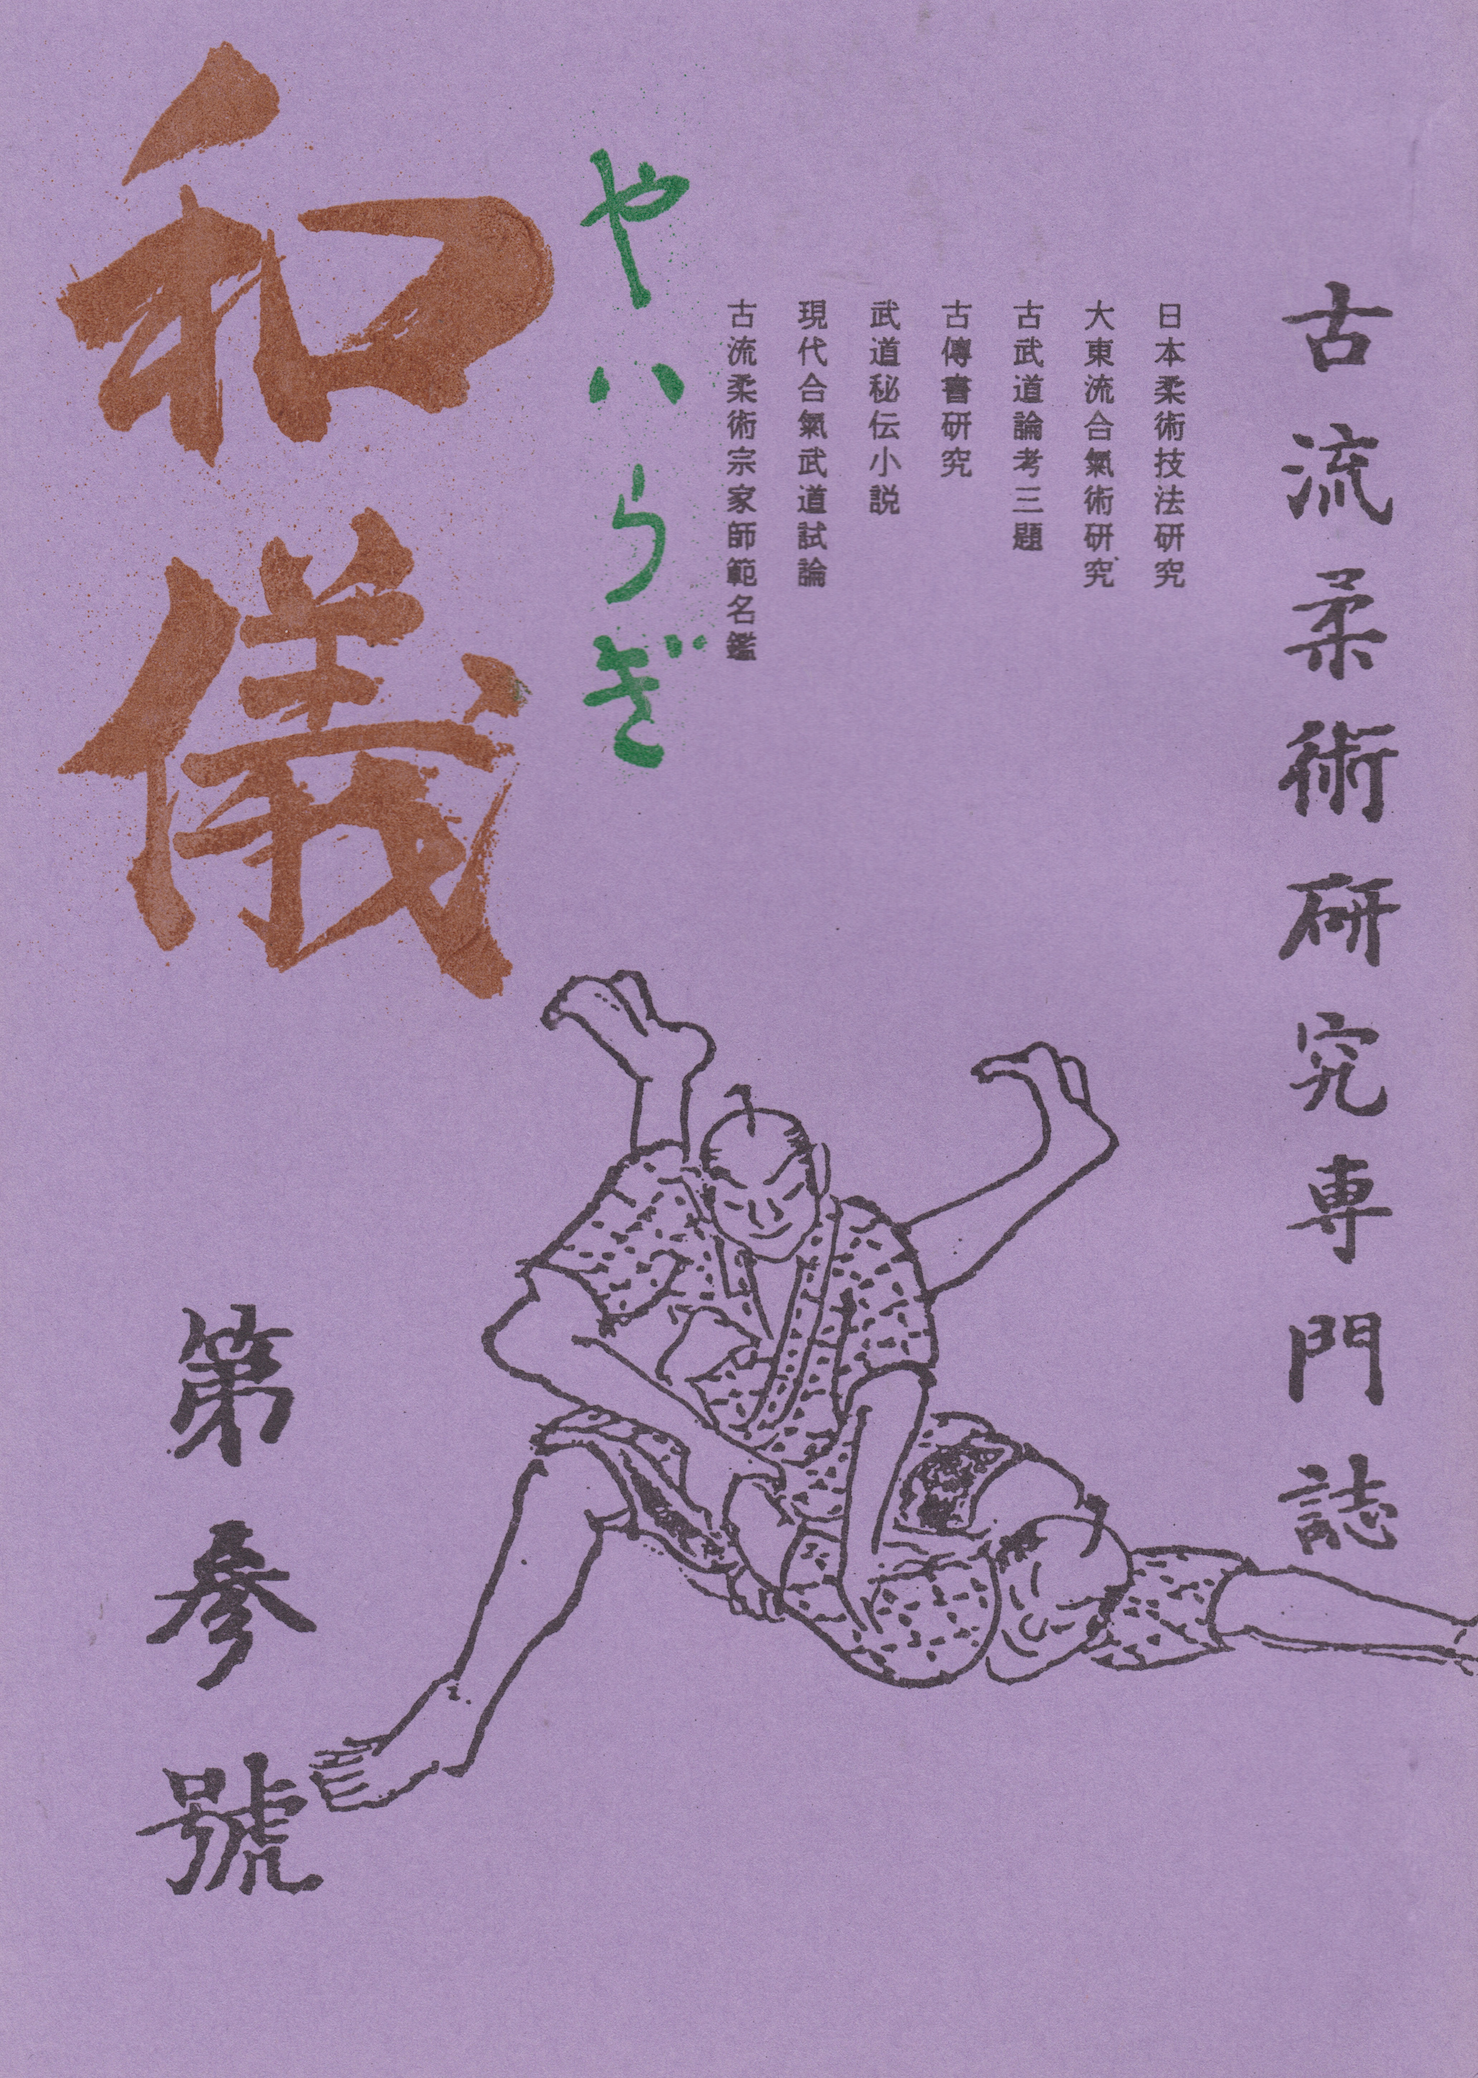 古流柔術研究専門誌
日本柔術技法研究
大東流合氣術研究
古武道論考三題
古傳書研究
武道秘伝小説
現代合氣武道試論
古流柔術宗家師範名鑑
やハらぎ
和儀
第参號